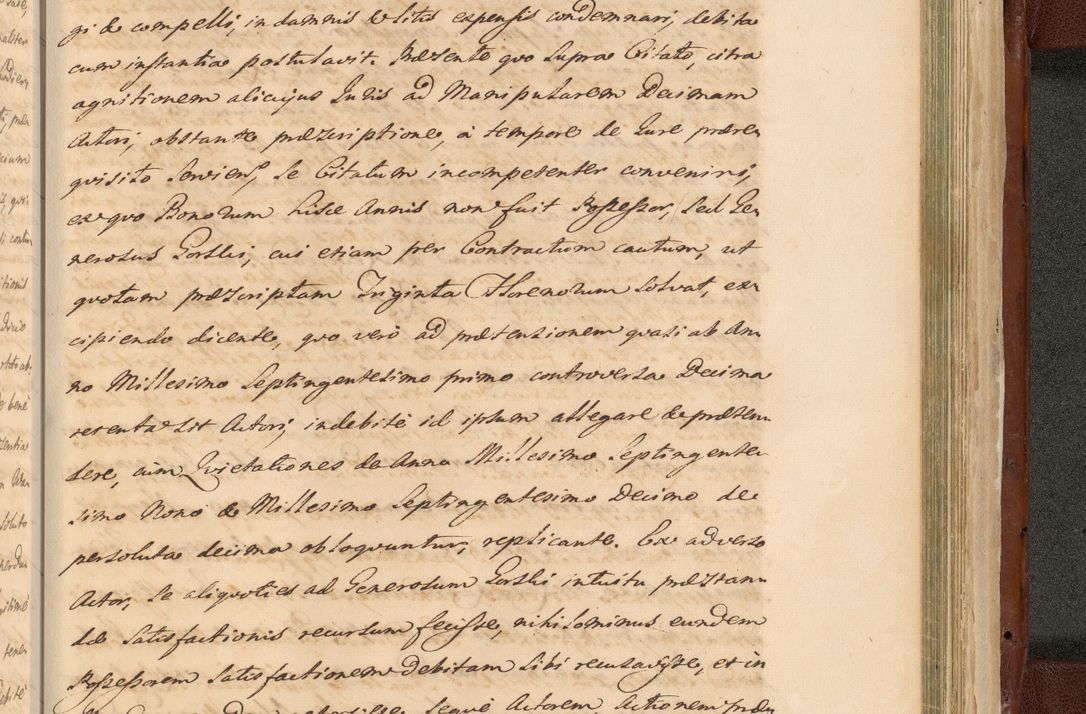 gi & compelli, in damnis & litis expensis condemnari, debita
cum instantia postulavit. Præsente quo supra Citato, citra
agnitionem alicujus Juris ad Manipularem Decimam
Actori, obstante præscriptione, à tempore de Jure prære-
quisito Servien, se Citatum incompetenter conveniri,
ex quo Bonorum hisce Annis non fuit Possessor, sed Ge-
nerosus Gorski, cui etiam per Contractum cautum, ut
quotam præscriptam Triginta Florenorum solvat, ex-
cipiendo dicente, quo verò ad prætensionem quasi ab An-
no Millesimo Septingentesimo primo controversa Decima
retenta sit Actori, indebitè id ipsum allegare & præten-
dere, cùm Quietationes de Anno Millesimo Septingente-
simo Nono & Millesimo Septingentesimo Decimo de
persoluta decima obloquuntur, replicante. Ex adverso
Actor, se aliquoties ad Generosum Gorski intuitu præstan-
dæ satisfactionis recursum fecisse, nihilominus eundem
Possessorem satisfactionem debitam sibi recusavisse, et in
seque Actorem, Actionem